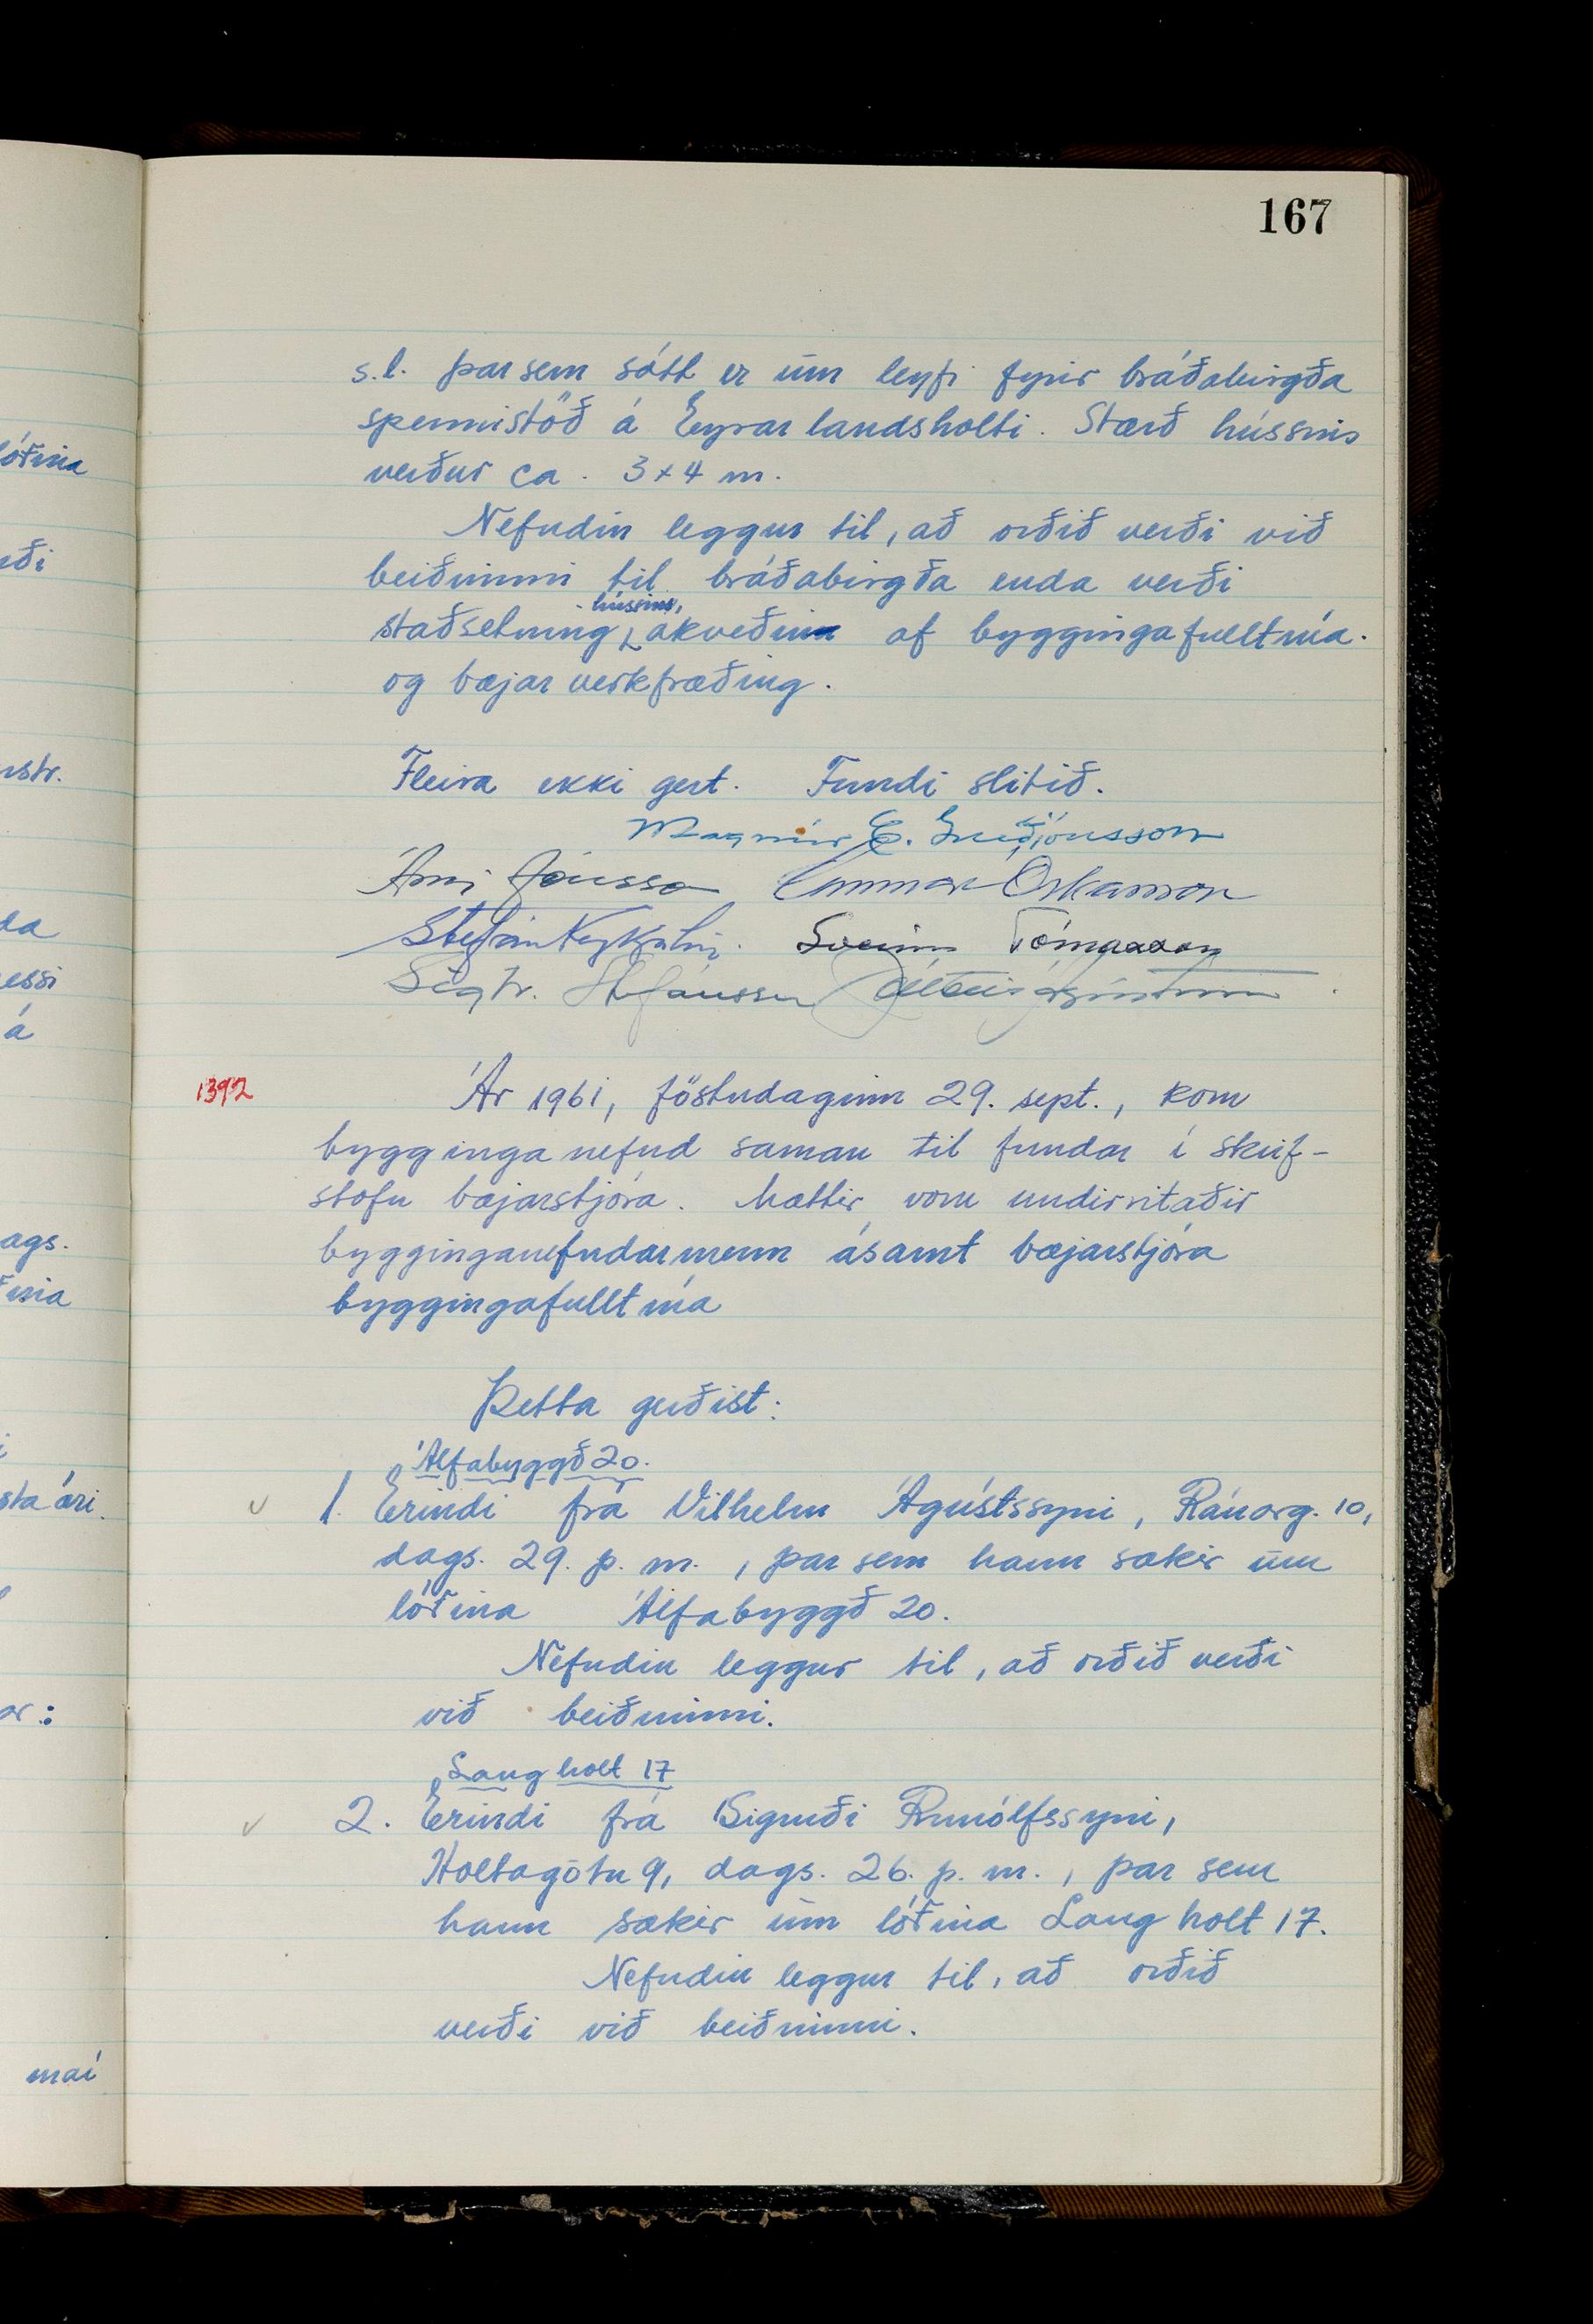 167
s.l. þar sem sótt er um leyfi fyrir bráðabirgða
spennistöð á Eyrarlandsholti. Stærð hússins
verður ca. 3x4 m.
Nefndin leggur til, að orðið verði við
beiðninni til bráðabirgða enda verði
staðsetning hússins, ákveðin af byggingafulltrúa.
og bæjarverkfræðing.
Fleira ekki gert. Fundi slitið.
Magnús E. Guðjónsson
Árni Jónsson Gunnar Óskarsson
Stefán Reykjalín. Sveinn Tómasson
Sigtr. Stefánsson
1392
Ár 1961, föstudaginn 29. sept., kom
bygginganefnd saman til fundar í skrif-
stofu bæjarstjóra. Mættir voru undirritaðir
bygginganefndarmenn ásamt bæjarstjóra
byggingafulltrúa
Þetta gerðist:
Álfabyggð 20.
1. Erindi frá Vilhelm Ágústssyni, Ránarg. 10,
dags. 29. þ. m., þar sem hann sækir um
lóðina Álfabyggð 20.
Nefndin leggur til, að orðið verði
við beiðninni.
Langholt 17
2. Erindi frá Sigurði Runólfssyni,
Holtagötu 9, dags. 26. þ. m., þar sem
hann sækir um lóðina Langholt 17.
Nefndin leggur til, að orðið
verði við beiðninni.